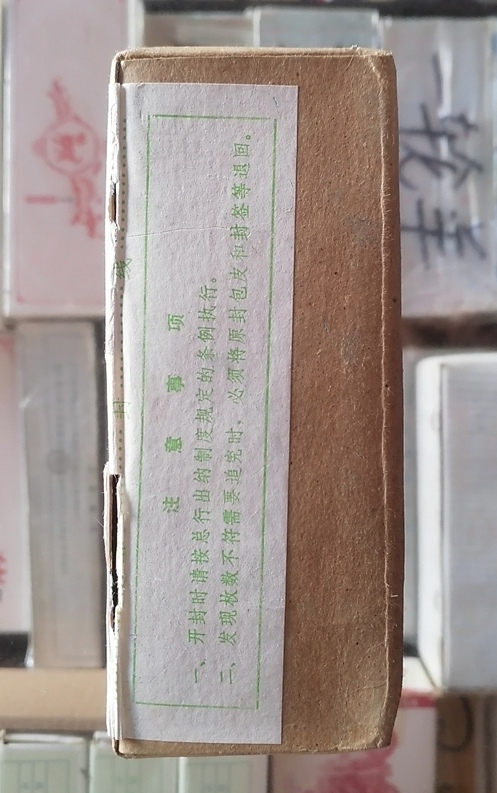 注意事项
一、开封时请按总行出纳制度规定的条例执行。
二、发现枚数不符需要追究时，必须将原封包皮和封签等退回。
封 线